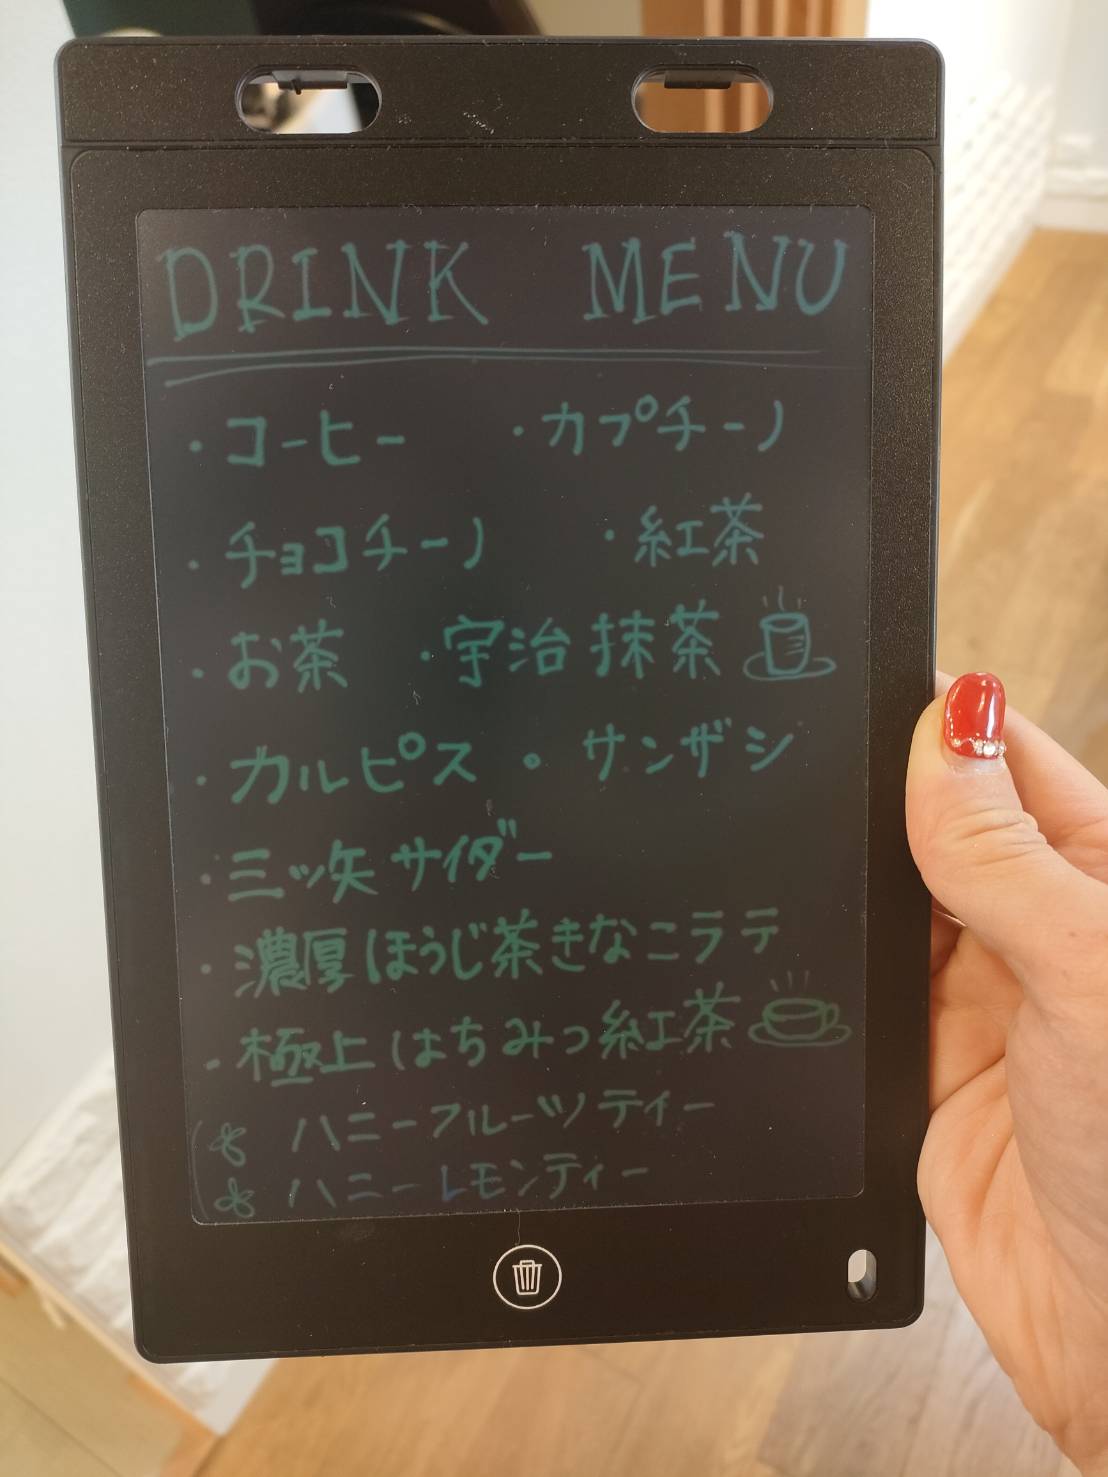 DRINK MENU
・コーヒー ・カプチーノ
・チョコチーノ ・紅茶
・お茶 ・宇治抹茶
・カルピス ・サンザシ
・三ツ矢サイダー
・濃厚ほうじ茶きなこラテ
・極上はちみつ紅茶
ハニーフルーツティー
ハニーレモンティー